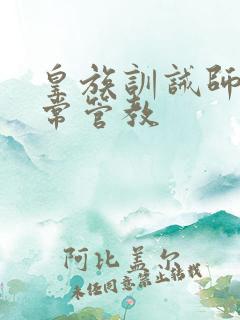 皇族訓誡師
常管教
阿比盖尔
未经同意禁止转载